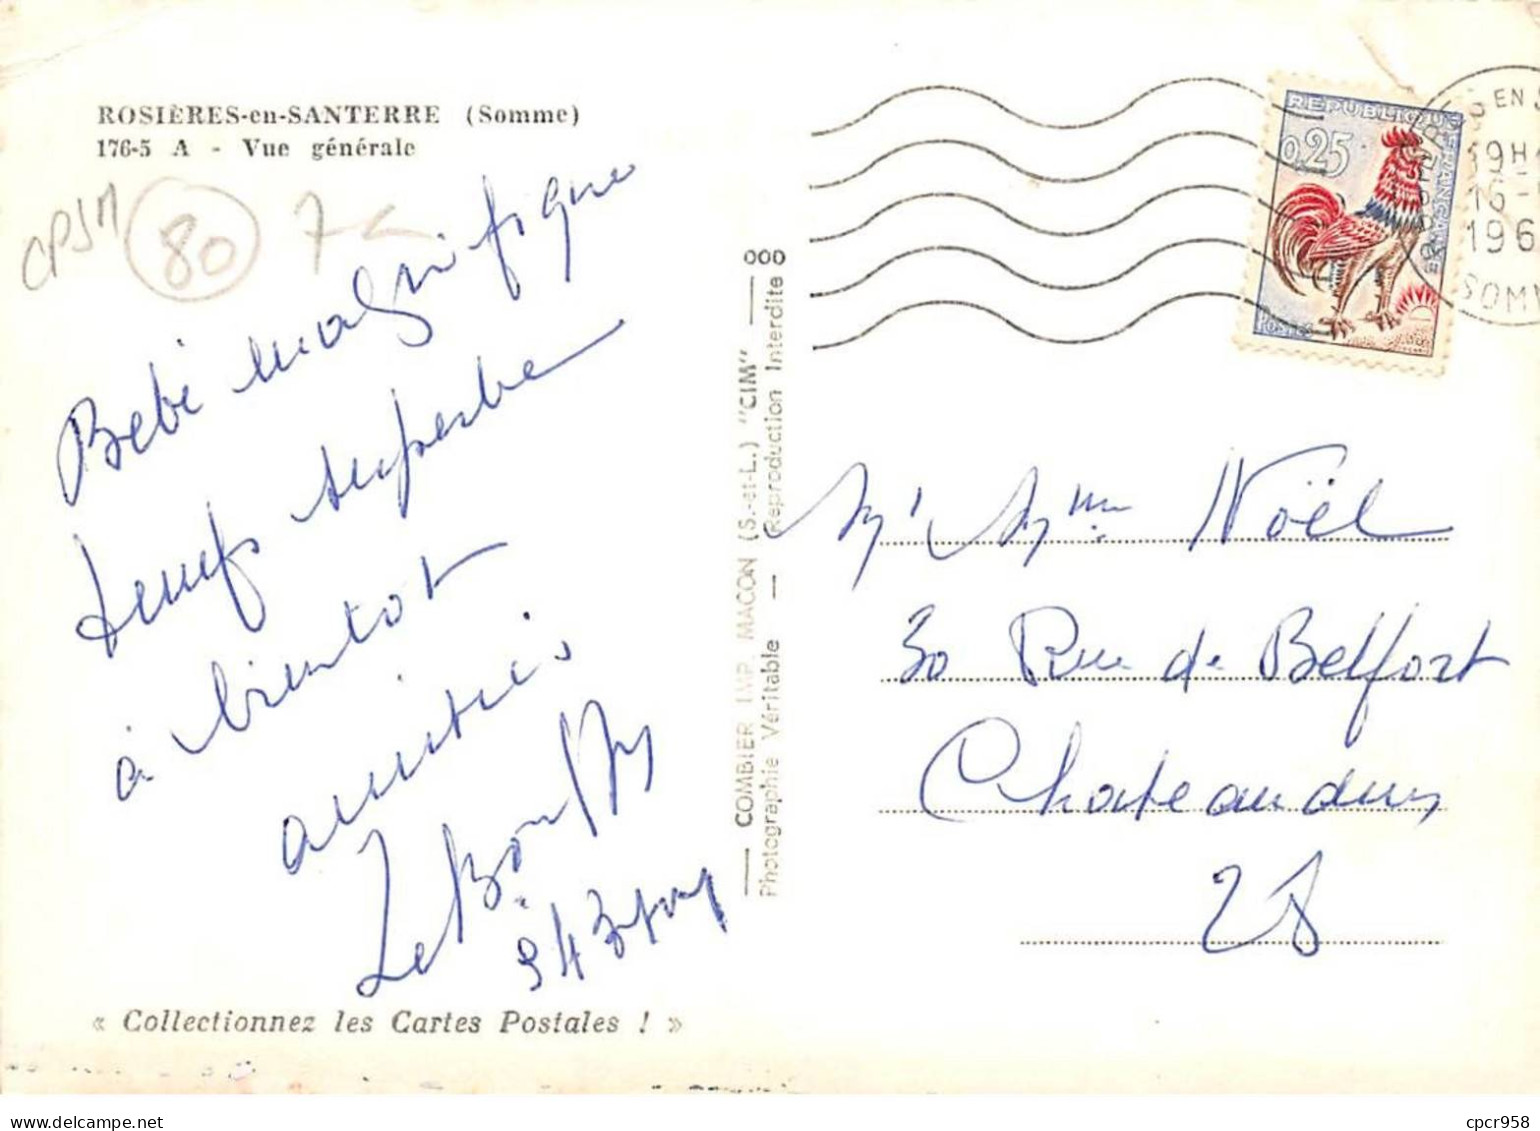 ROSIÈRES-en-SANTERRE (Somme)
176-5 A - Vue générale
CPSM 80 7-
Bébé magnifique
temps superbe
à bientot
amitiés
— COMBIER IMP. MACON (S.-et-L.) "CIM" — 000
Photographie Véritable — Reproduction Interdite
« Collectionnez les Cartes Postales ! »
REPUBLIQUE FRANÇAISE
0,25
POSTES
EN S
19H
16-
196
SOMM
Mr Mme Noël
30 Rue de Belfort
Chateaudun
28
cpcr958